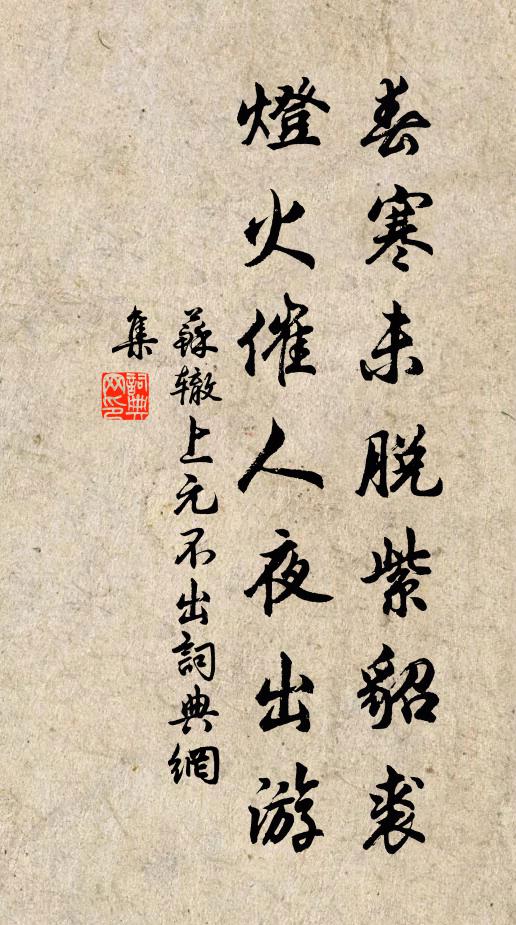 春寒未脱紫貂裘
燈火催人夜出游
蘇辙上元不出詞典網
集
詞典网印